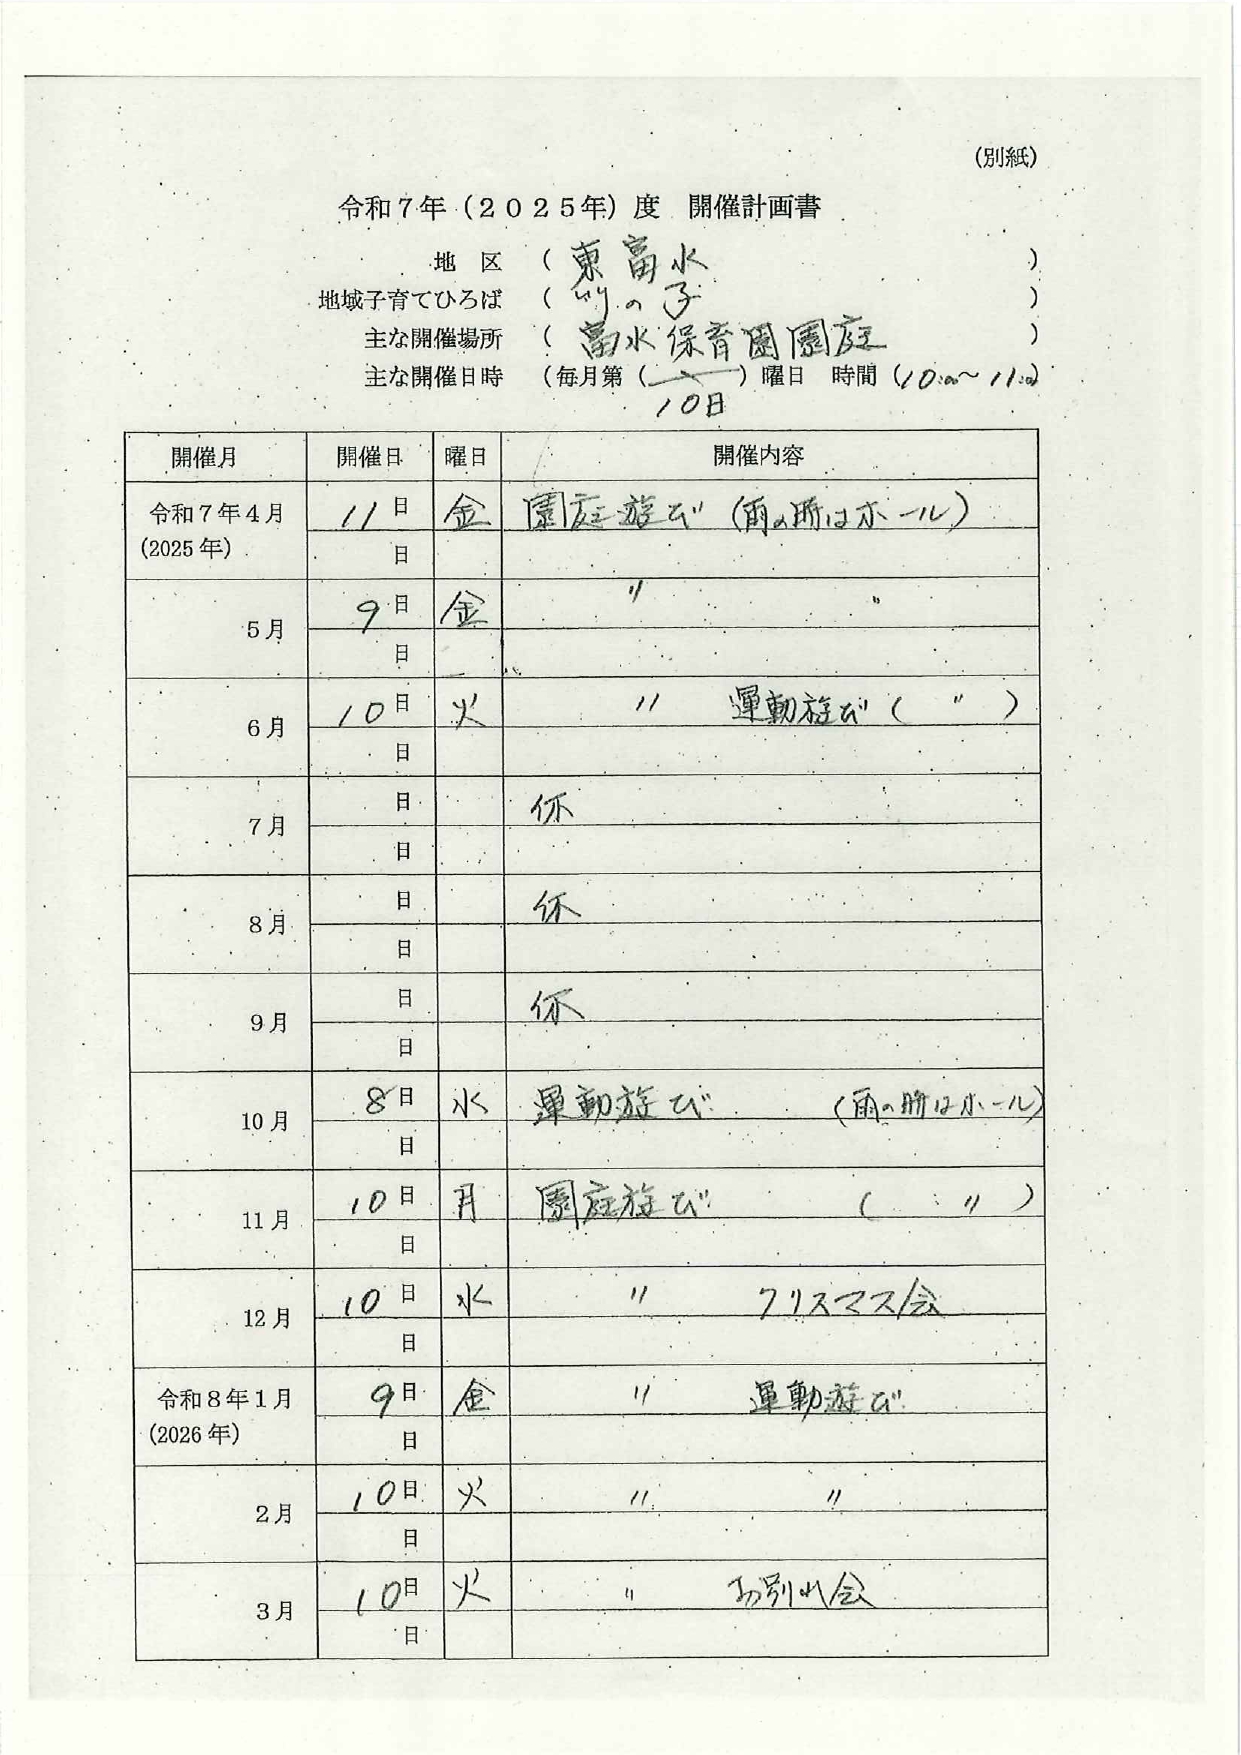 (別紙)
令和7年(2025年)度 開催計画書
地 区 ( 東富水 )
地域子育てひろば ( 竹の子 )
主な開催場所 ( 富水保育園園庭 )
主な開催日時 (毎月第( ) 曜日 時間 (10:00~11:00)
10日
開催月 開催日 曜日 開催内容
令和7年4月 11日 金 園庭遊び (雨の時はホール)
(2025年) 日
5月 9日 金 〃 〃
日
6月 10日 火 〃 運動遊び ( 〃 )
日
7月 日 休
日
8月 日 休
日
9月 日 休
日
10月 8日 水 運動遊び (雨の時はホール)
日
11月 10日 月 園庭遊び ( 〃 )
日
12月 10日 水 〃 クリスマス会
日
令和8年1月 9日 金 〃 運動遊び
(2026年) 日
2月 10日 火 〃 〃
日
3月 10日 火 〃 お別れ会
日